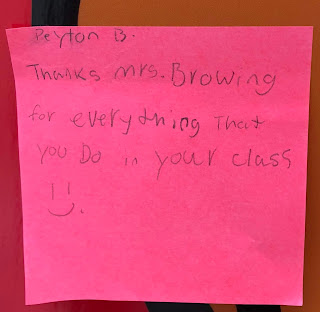 Peyton B.
Thanks mrs. Browing
for everything That
you Do in your class